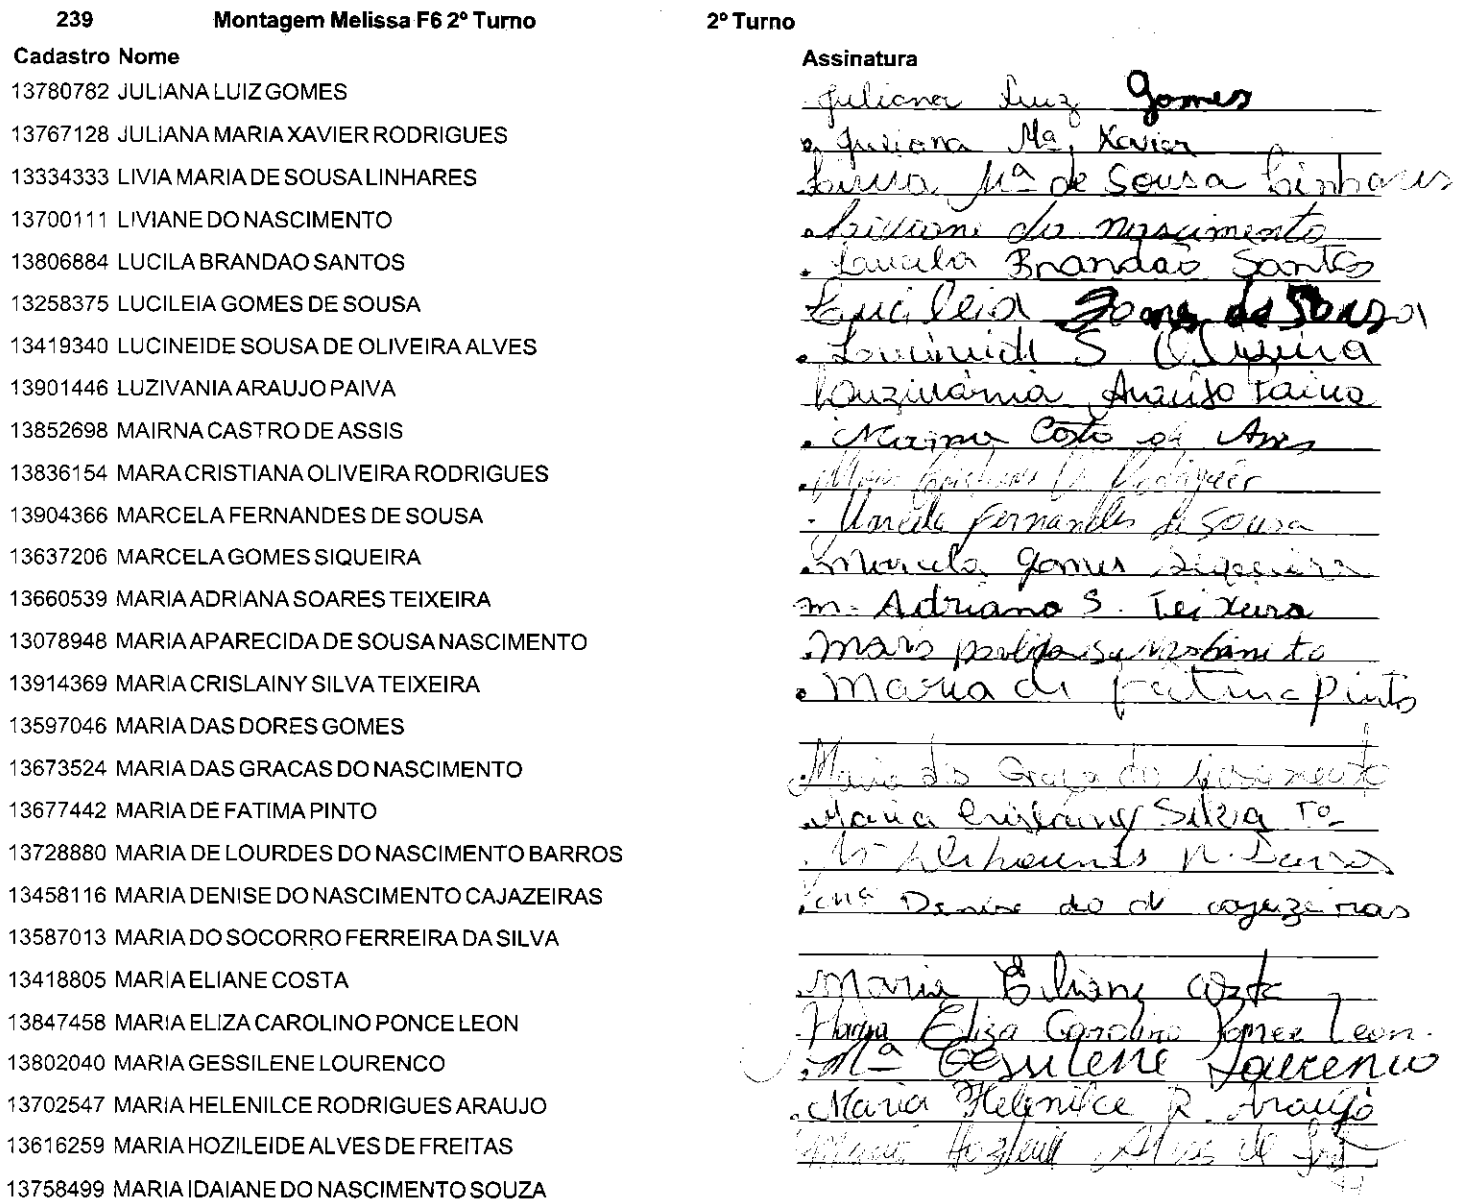 239 Montagem Melissa F6 2º Turno 2º Turno
Cadastro Nome Assinatura
13780782 JULIANA LUIZ GOMES Juliana Luiz Gomes
13767128 JULIANA MARIA XAVIER RODRIGUES Juliana Mª Xavier
13334333 LIVIA MARIA DE SOUSA LINHARES Mª de Sousa Linhares
13700111 LIVIANE DO NASCIMENTO Liviane do nascimento
13806884 LUCILA BRANDAO SANTOS Lucila Brandão Santos
13258375 LUCILEIA GOMES DE SOUSA Lucileia Gomes de Sousa
13419340 LUCINEIDE SOUSA DE OLIVEIRA ALVES Lucineide S Oliveira
13901446 LUZIVANIA ARAUJO PAIVA Luzivânia Araújo Paiva
13852698 MAIRNA CASTRO DE ASSIS
13836154 MARA CRISTIANA OLIVEIRA RODRIGUES Rodrigues
13904366 MARCELA FERNANDES DE SOUSA Fernandes de Sousa
13637206 MARCELA GOMES SIQUEIRA Marcela Gomes Siqueira
13660539 MARIA ADRIANA SOARES TEIXEIRA m. Adriana S. Teixeira
13078948 MARIA APARECIDA DE SOUSA NASCIMENTO
13914369 MARIA CRISLAINY SILVA TEIXEIRA Maria de Fatima Pinto
13597046 MARIA DAS DORES GOMES
13673524 MARIA DAS GRACAS DO NASCIMENTO Maria das Graça do Nascimento
13677442 MARIA DE FATIMA PINTO Maria Crislainy Silva Tª
13728880 MARIA DE LOURDES DO NASCIMENTO BARROS
13458116 MARIA DENISE DO NASCIMENTO CAJAZEIRAS Denise do cajazeiras
13587013 MARIA DO SOCORRO FERREIRA DA SILVA
13418805 MARIA ELIANE COSTA Maria Eliane Costa
13847458 MARIA ELIZA CAROLINO PONCE LEON Maria Eliza Carolino Ponce Leon.
13802040 MARIA GESSILENE LOURENCO Mª Gessilene Lourenco
13702547 MARIA HELENILCE RODRIGUES ARAUJO Maria Helenilce R. Araujo
13616259 MARIA HOZILEIDE ALVES DE FREITAS Alves de
13758499 MARIA IDAIANE DO NASCIMENTO SOUZA